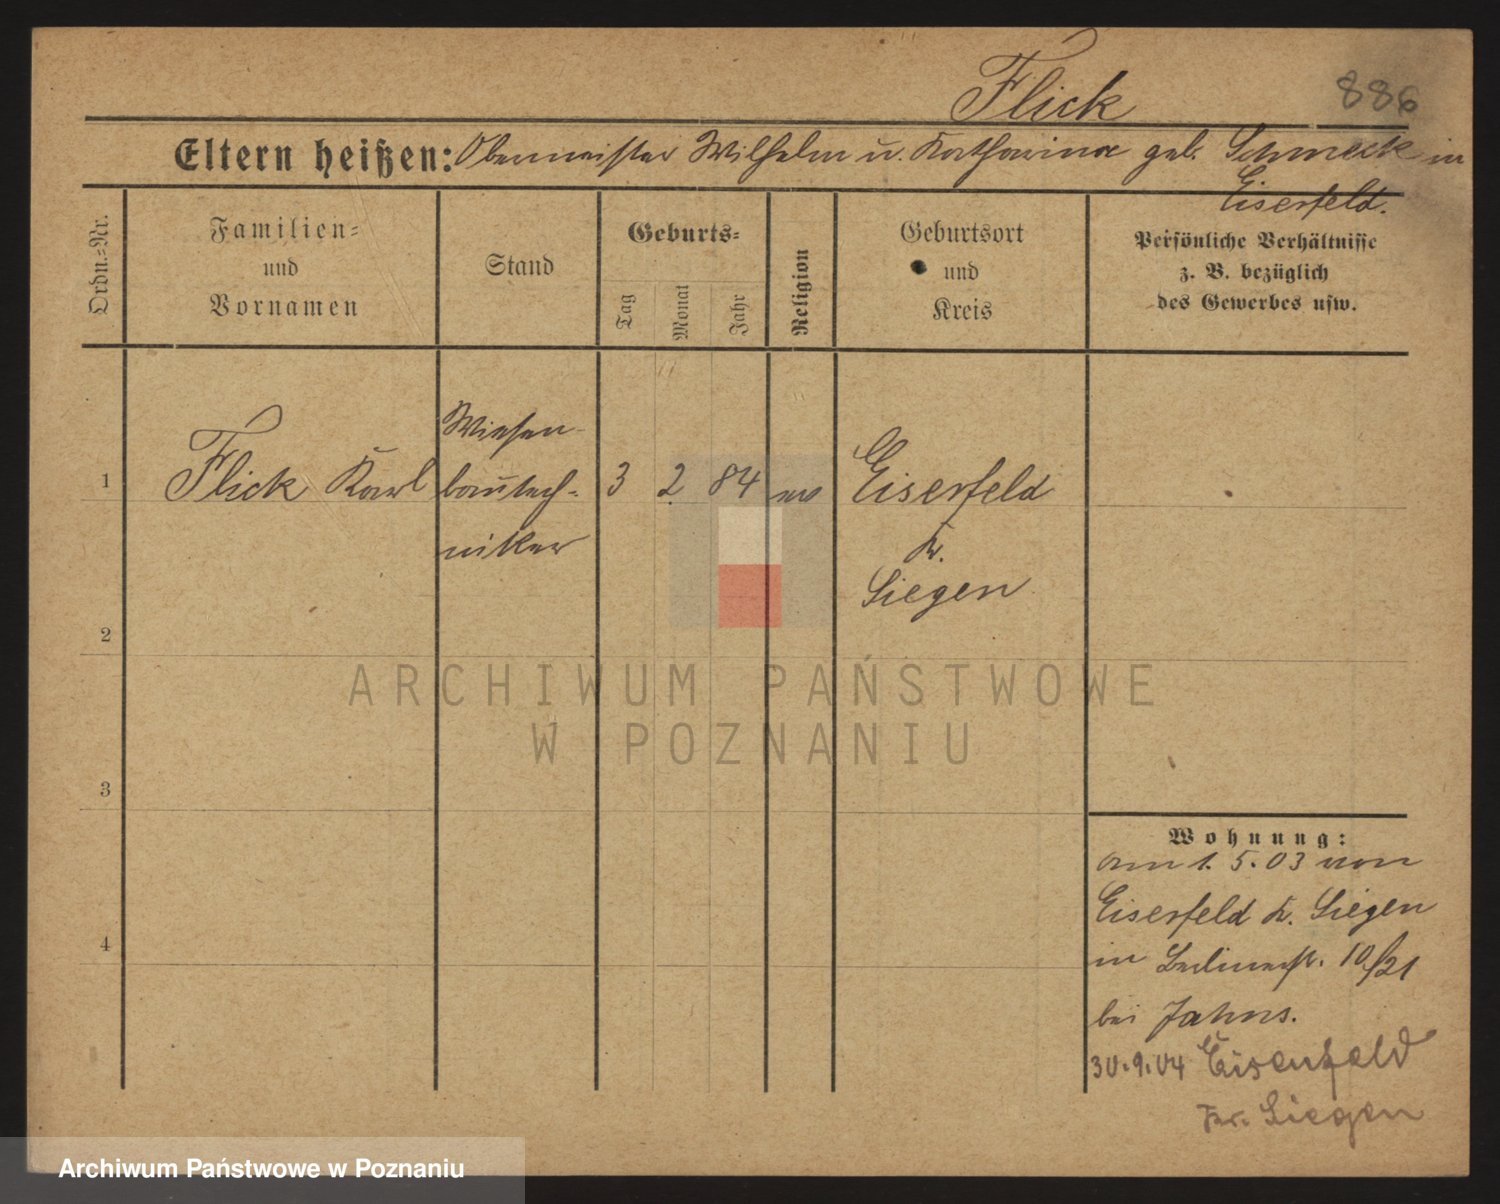 Flick
886
Eltern heißen: Obermeister Wilhelm u. Katharina geb. Schmeck in
Eiserfeld.
Ordn.=Nr.
Familien=
und
Vornamen
Stand
Geburts=
Tag
Monat
Jahr
Religion
Geburtsort
und
Kreis
Persönliche Verhältnisse
z. B. bezüglich
des Gewerbes usw.
1
Flick Karl
Wiesen-
bautech-
niker
3 2 84
ev
Eiserfeld
Kr.
Siegen
2
3
4
Wohnung:
am 1. 5. 03 von
Eiserfeld Kr. Siegen
in Berlinerstr. 10/21
bei Jahns.
30.9.04 Eisenfeld
Kr. Siegen
ARCHIWUM PAŃSTWOWE
W POZNANIU
Archiwum Państwowe w Poznaniu